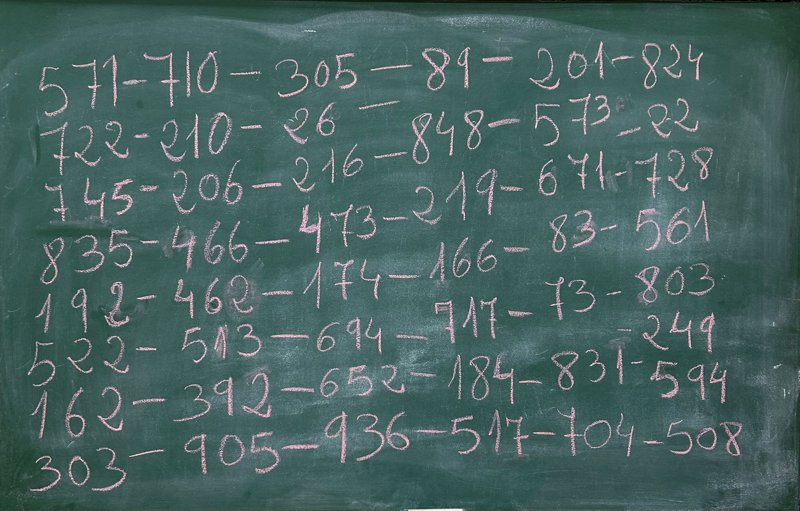 571-710-305-89-201-824
722-210-26-848-573-22
745-206-216-219-671-728
835-466-473-166-83-561
192-462-174-717-73-803
522-513-694-184-831-249
162-392-652-517-704-594
303-905-936-508